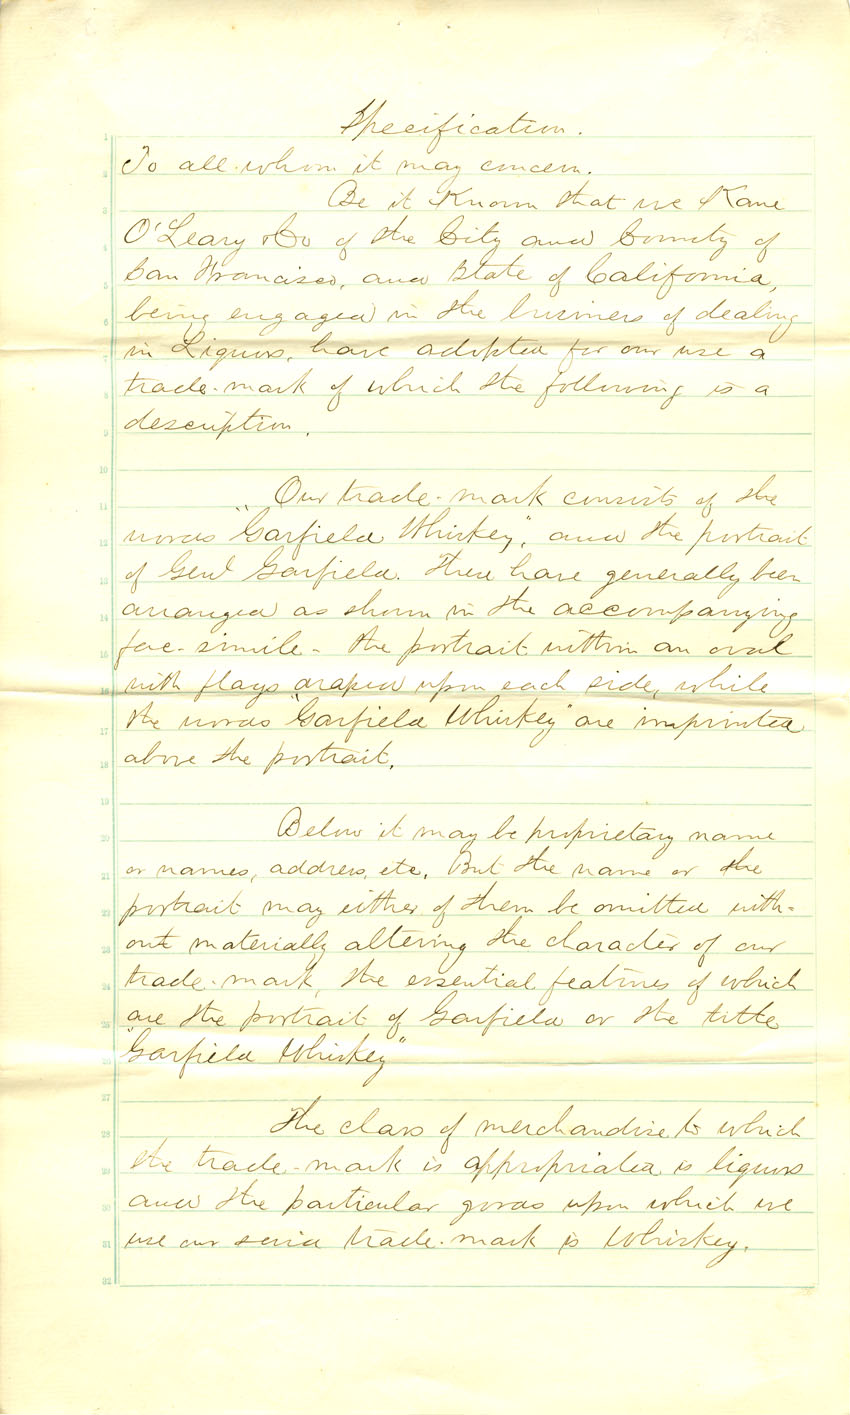 Specification.
1
To all whom it may concern.
2
Be it Known that we Kane
3
O'Leary & Co of the City and County of
4
San Francisco, and State of California,
5
being engaged in the business of dealing
6
in Liquors, have adopted for our use a
7
trade-mark of which the following is a
8
description.
9
10
Our trade-mark consists of the
11
words "Garfield Whiskey", and the portrait
12
of Genl Garfield. These have generally been
13
arranged as shown in the accompanying
14
fac-simile - the portrait within an oval
15
with flags draped upon each side, while
16
the words "Garfield Whiskey" are imprinted
17
above the portrait.
18
19
Below it may be proprietary name
20
or names, address, etc. But the name or the
21
portrait may either of them be omitted with-
22
out materially altering the character of our
23
trade-mark, the essential features of which
24
are the portrait of Garfield or the title
25
"Garfield Whiskey"
26
27
The class of merchandise to which
28
the trade-mark is appropriated is liquors
29
and the particular goods upon which we
30
use our said trade-mark is Whiskey.
31
32